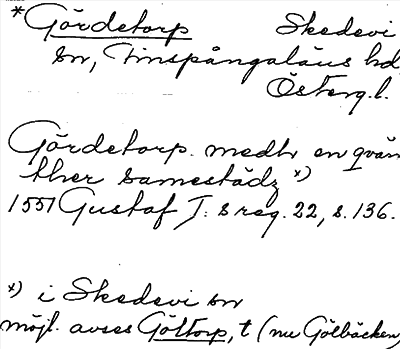 *Gördetorp Skedevi
sn, Finspångaläns hd,
Österg.l.
Gördetorp. medh en qvän
ther samestädz x)
1551 Gustaf I:s reg. 22, s. 136.
x) i Skedevi sn
möjl. avses Göltorp, t (nu Gölbäcken)